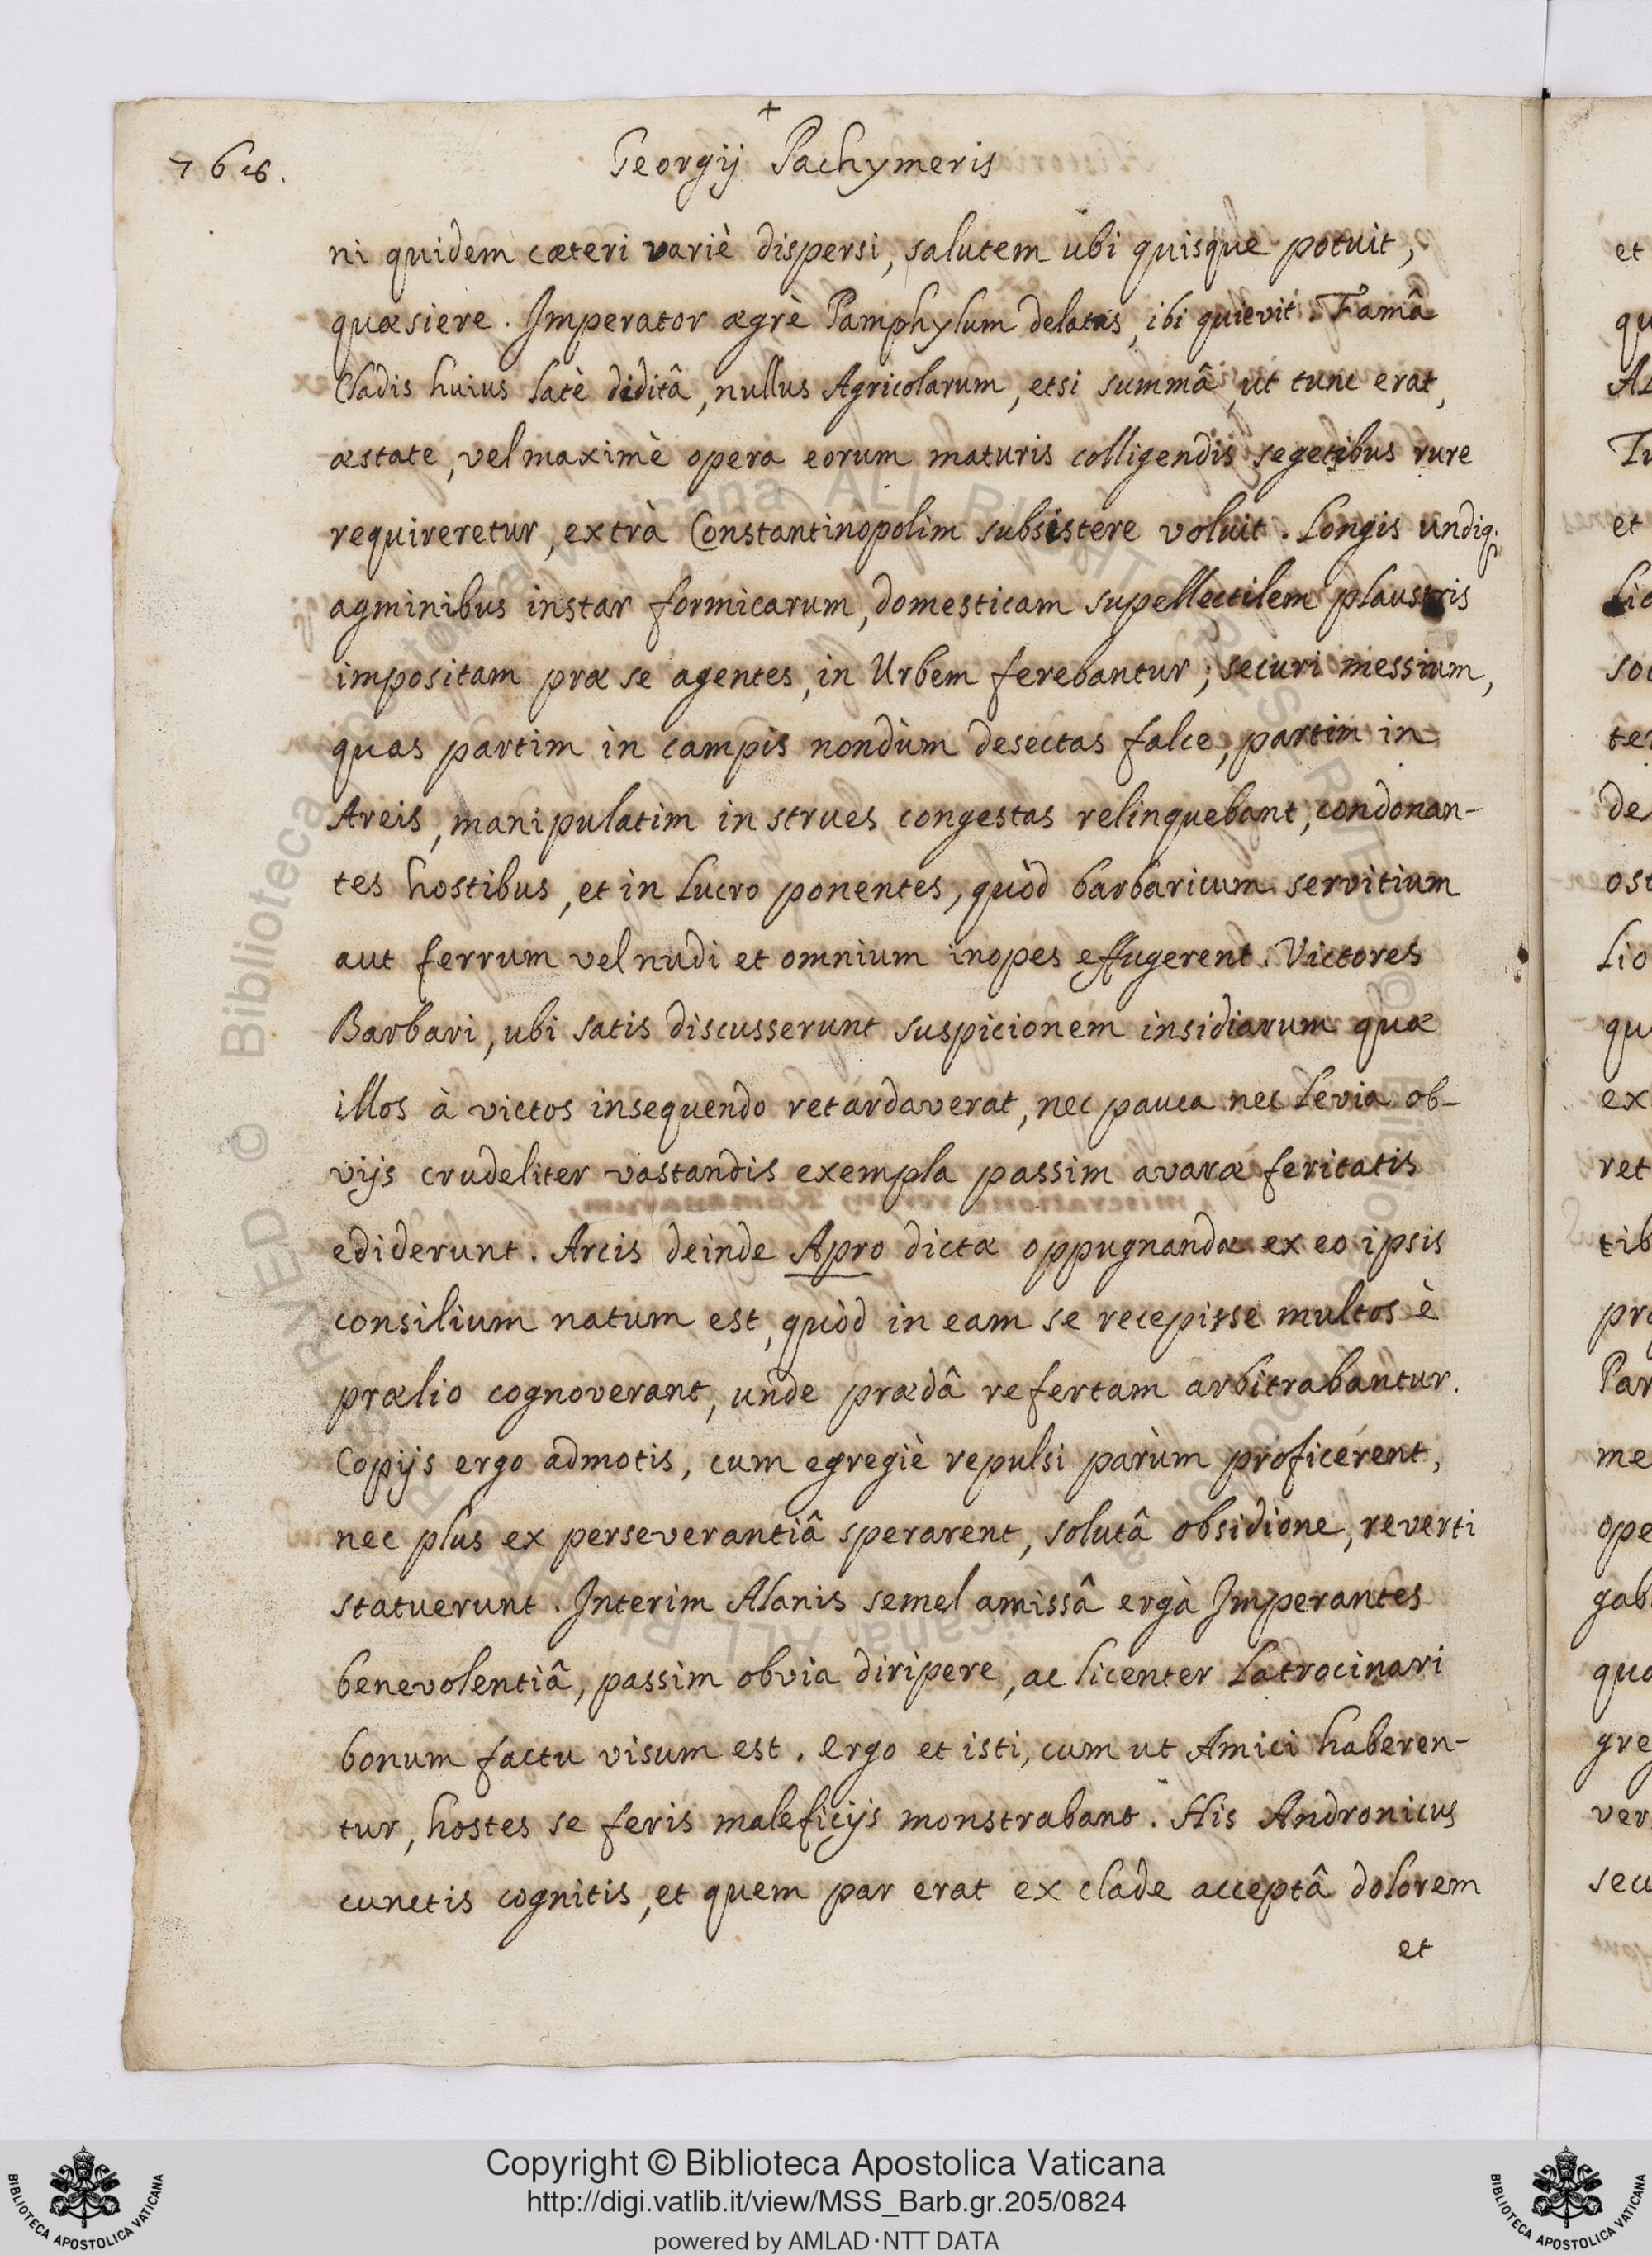 Georgij Pachymeris
ni quidem cæteri variè dispersi, salutem ubi quisque potuit,
quæsiere. Imperator ægrè Pamphylum delatus, ibi quievit. Famâ
Cladis huius latè diditâ, nullus Agricolarum, etsi summâ, ut tunc erat,
æstate, vel maximè opera eorum maturis colligendis segetibus rure
requireretur, extrà Constantinopolim subsistere voluit. Longis undiq;
agminibus instar formicarum, domesticam supellectilem plaustris
impositam præ se agentes, in Urbem ferebantur; securi messium,
quas partim in campis nondùm desectas falce, partim in
Areis, manipulatim in strues congestas relinquebant, condonan-
tes hostibus, et in Lucro ponentes, quòd barbaricum servitium
aut ferrum vel nudi et omnium inopes effugerent. Victores
Barbari, ubi satis discusserunt suspicionem insidiarum quæ
illos à victos insequendo retardaverat, nec pauca nec Levia ob-
vijs crudeliter vastandis exempla passim avaræ feritatis
ediderunt. Arcis deinde Apro dictæ oppugnandæ ex eo ipsis
consilium natum est, quòd in eam se recepisse multos è
prælio cognoverant, unde prædâ refertam arbitrabantur.
Copijs ergo admotis, cum egregiè repulsi parùm proficerent,
nec plus ex perseverantiâ sperarent, solutâ obsidione, reverti
statuerunt. Interim Alanis semel amissâ ergà Imperantes
benevolentiâ, passim obvia diripere, ac licenter Latrocinari
bonum factu visum est. Ergo et isti, cum ut Amici haberen-
tur, hostes se feris maleficijs monstrabant. His Andronicus
cunctis cognitis, et quem par erat ex clade acceptâ dolorem
et
Copyright © Biblioteca Apostolica Vaticana
http://digi.vatlib.it/view/MSS_Barb.gr.205/0824
powered by AMLAD·NTT DATA
BIBLIOTECA APOSTOLICA VATICANA
BIBLIOTECA APOSTOLICA VATICANA